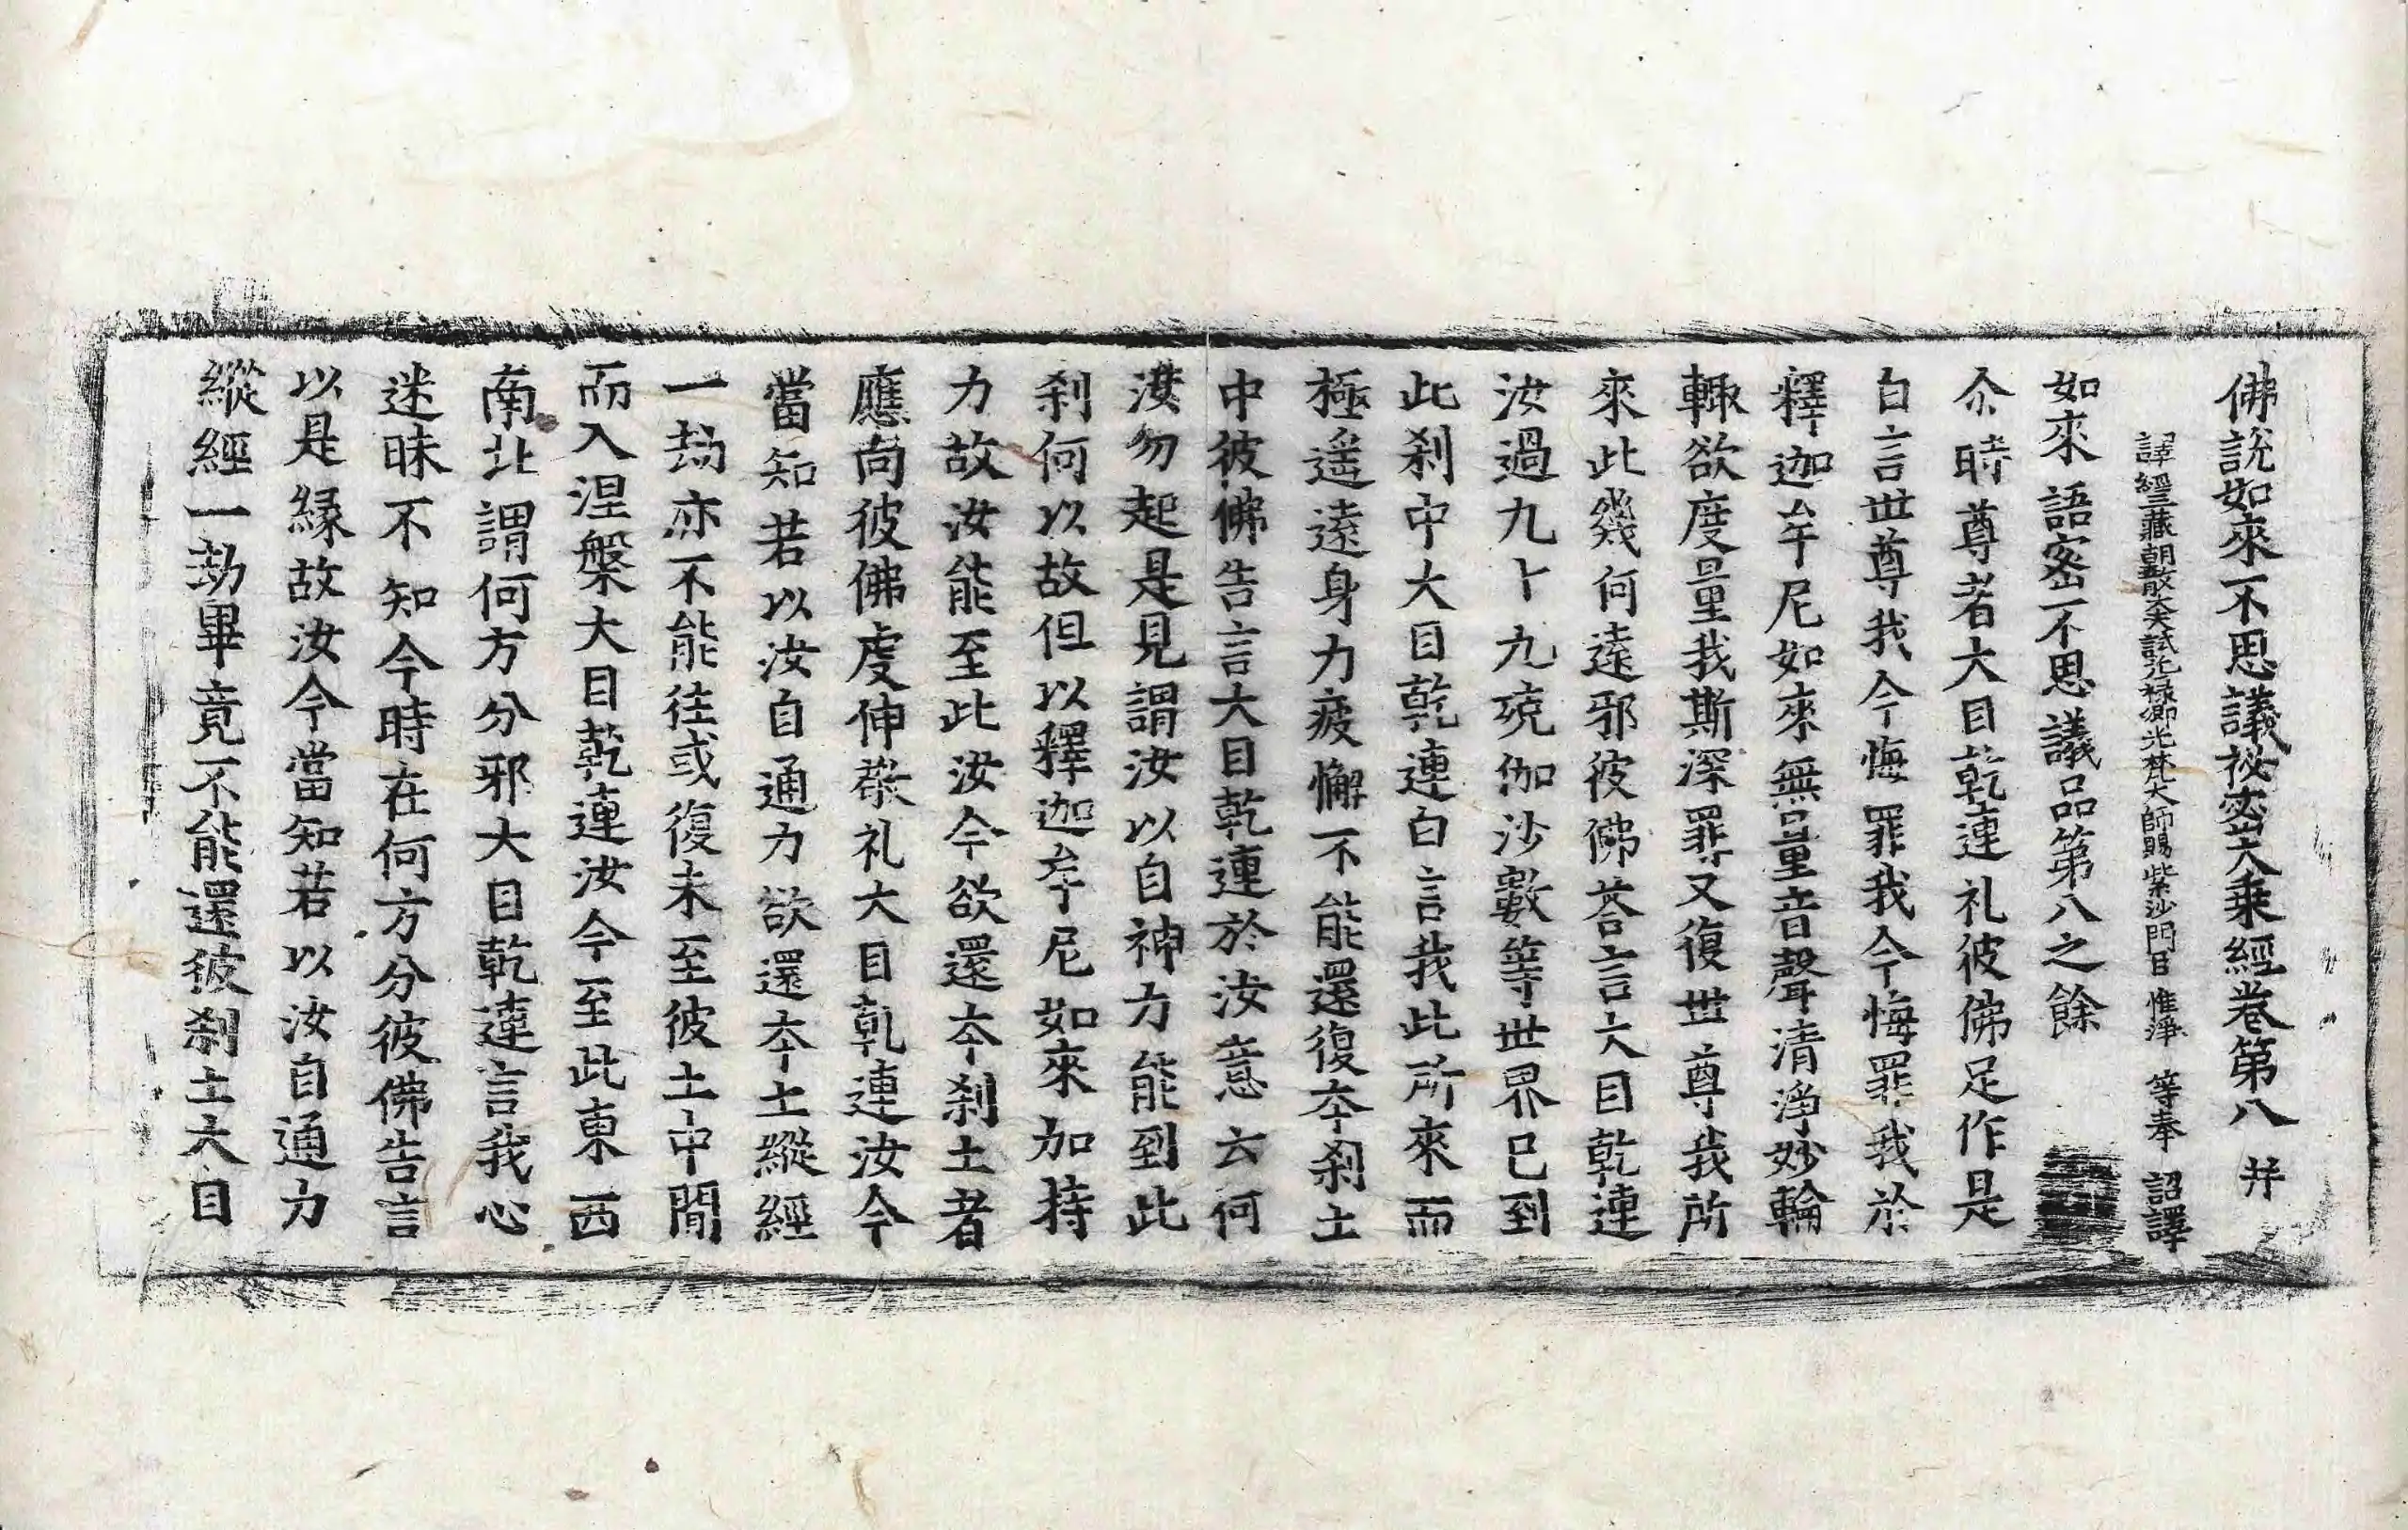 佛說如來不思議祕密大乘經卷第八 并
譯經三藏朝散大夫試光祿卿光梵大師賜紫沙門臣 惟淨 等奉 詔譯
如來語密不思議品第八之餘
尒時尊者大目乾連礼彼佛足作是
白言世尊我今悔罪我今悔罪我於
釋迦牟尼如來無量音聲清淨妙輪
輙欲度量我斯深罪又復世尊我所
來此幾何遠邪彼佛荅言大目乾連
汝過九十九殑伽沙數等世界已到
此刹中大目乾連白言我此所來而
極遥遠身力疲懈不能還復夲刹土
中彼佛告言大目乾連於汝意云何
汝勿起是見謂汝以自神力能到此
刹何以故但以釋迦牟尼如來加持
力故汝能至此汝今欲還夲刹土者
應向彼佛䖏伸敬礼大目乾連汝今
當知若以汝自通力欲還夲土縱經
一劫亦不能徃或復未至彼土中間
而入涅槃大目乾連汝今至此東西
南北謂何方分邪大目乾連言我心
迷昧不知今時在何方分彼佛告言
以是縁故汝今當知若以汝自通力
縱經一劫畢竟不能還彼刹土大目